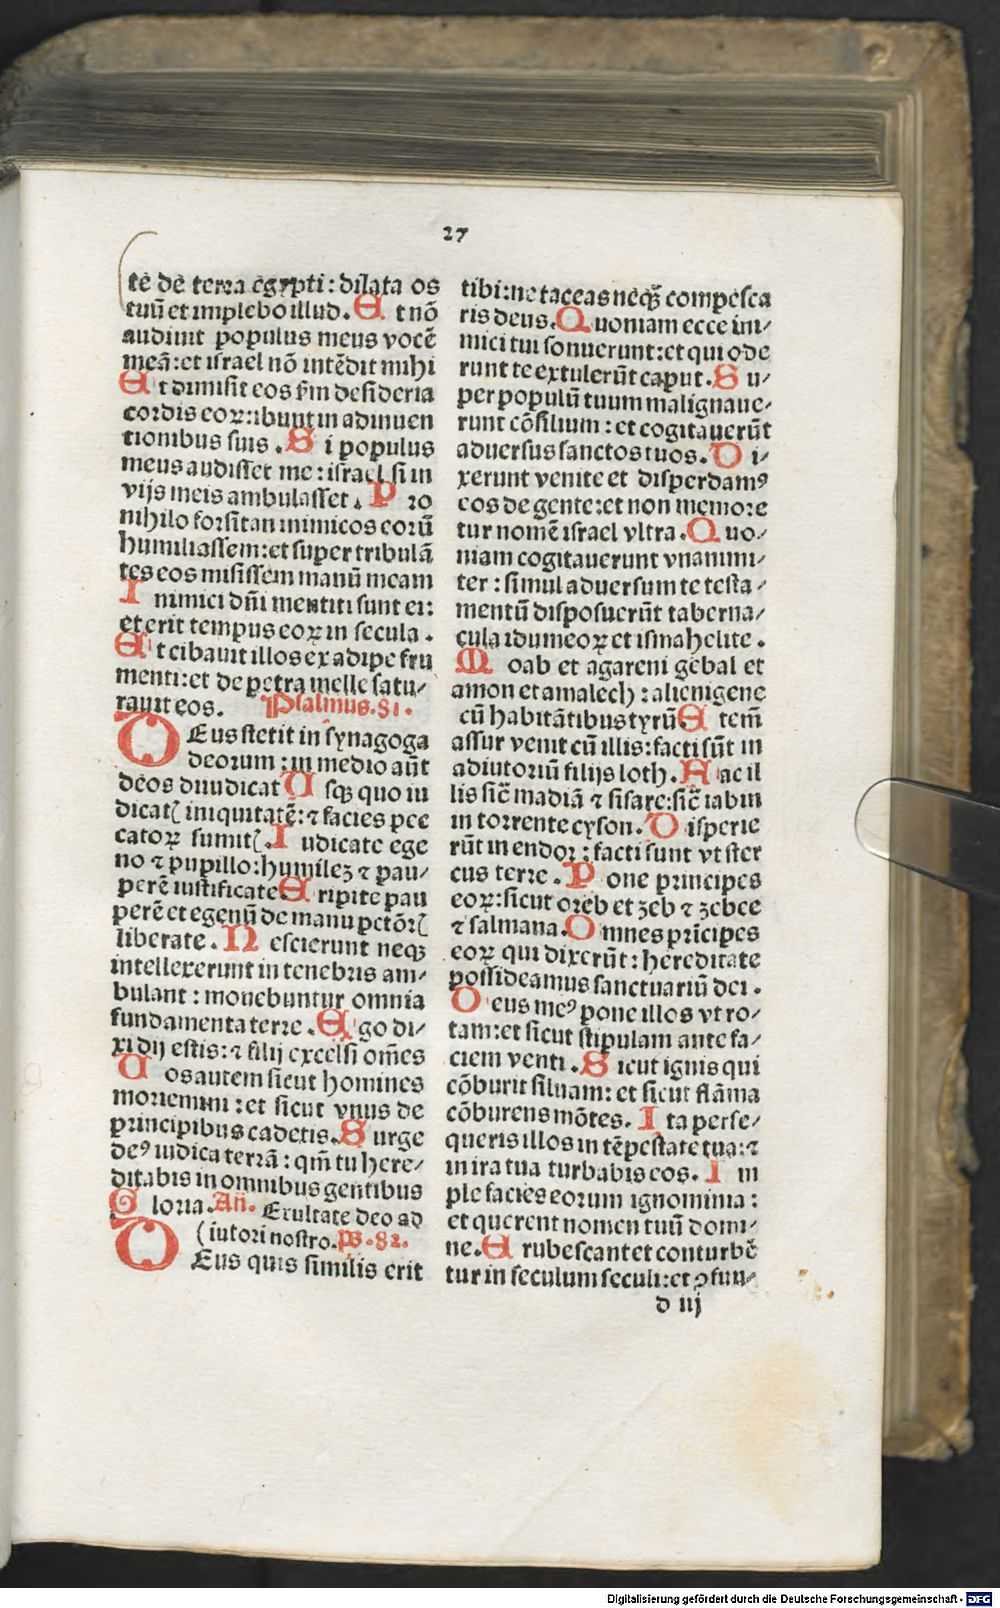 27
te de terra egypti: dilata os
tuū et implebo illud. Et nō
audiuit populus meus vocē
meā: et israel nō intēdit mihi
Et dimisit eos ẜm desideria
cordis eoꝝ: ibunt in adinuen
tionibus suis. Si populus
meus audisset me: israel si in
vijs meis ambulasset. Pro
nihilo forsitan inimicos eorū
humiliassem: et super tribulā
tes eos misissem manū meam
Inimici dn̄i mentiti sunt ei:
et erit tempus eoꝝ in secula.
Et cibauit illos ex adipe fru
menti: et de petra melle satu⸗
rauit eos. Psalmus.81.
DEus stetit in synagoga
deorum: in medio aūt
deos diiudicat Usqꝫ quo iu
dicatꝭ iniquitatē: ⁊ facies pec
catoꝝ sumitꝭ. Iudicate ege
no ⁊ pupillo: humileꝫ ⁊ pau⸗
perē iustificate Eripite pau
perē et egenū de manu pctōrꝭ
liberate. Nescierunt neqꝫ
intellexerunt in tenebris am⸗
bulant: mouebuntur omnia
fundamenta terre. Ego di⸗
xi dij estis: ⁊ filij excelsi om̄es
Uos autem sicut homines
moriemini: et sicut vnus de
principibus cadetis. Surge
deꝰ iudica terrā: qm̄ tu here⸗
ditabis in omnibus gentibus
Gloria. Añ. Exultate deo ad
(iutori nostro. ps.82.
DEus quis similis erit
tibi: ne taceas neqꝫ compesca
ris deus. Quoniam ecce ini⸗
mici tui sonuerunt: et qui ode
runt te extulerūt caput. Su⸗
per populū tuum malignaue⸗
runt cōsilium: et cogitauerūt
aduersus sanctos tuos. Di⸗
xerunt venite et disperdamꝰ
eos de gente: et non memore
tur nomē israel vltra. Quo⸗
niam cogitauerunt vnanimi⸗
ter: simul aduersum te testa⸗
mentū disposuerūt taberna⸗
cula idumeoꝝ et ismahelite.
Moab et agareni gebal et
amon et amalech: alienigene
cū habitātibus tyrū Etem̄
assur venit cū illis: facti sūt in
adiutoriū filijs loth. Fac il
lis sic̄ madiā ⁊ sisare: sic̄ iabin
in torrente cyson. Disperie
rūt in endor: facti sunt vt ster
cus terre. Pone principes
eoꝝ: sicut oreb et zeb ⁊ zebee
⁊ salmana. Omnes prīcipes
eoꝝ qui dixerūt: hereditate
possideamus sanctuariū dei.
Deus meꝰ pone illos vt ro⸗
tam: et sicut stipulam ante fa⸗
ciem venti. Sicut ignis qui
cōburit siluam: et sicut flāma
cōburens mōtes. Ita perse⸗
queris illos in tēpestate tua: ⁊
in ira tua turbabis eos. Im
ple facies eorum ignominia:
et querent nomen tuū domi⸗
ne. Erubescant et conturbē
tur in seculum seculi: et ꝯfun⸗
d iij
Digitalisierung gefördert durch die Deutsche Forschungsgemeinschaft - DFG